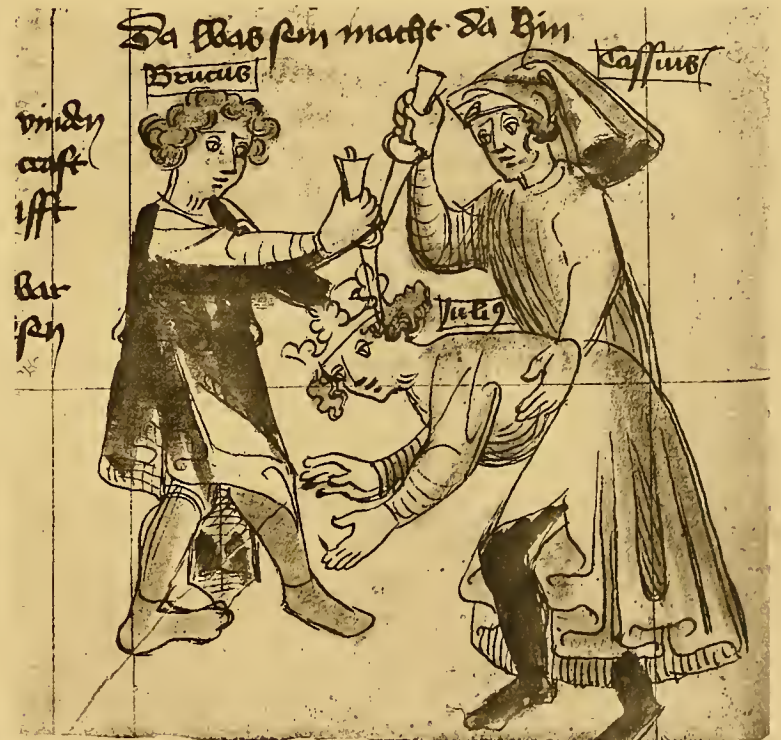 Da was sin macht da hin
Brutus
Cassius
vinden
craft
ifft
bar
sin
Juli9